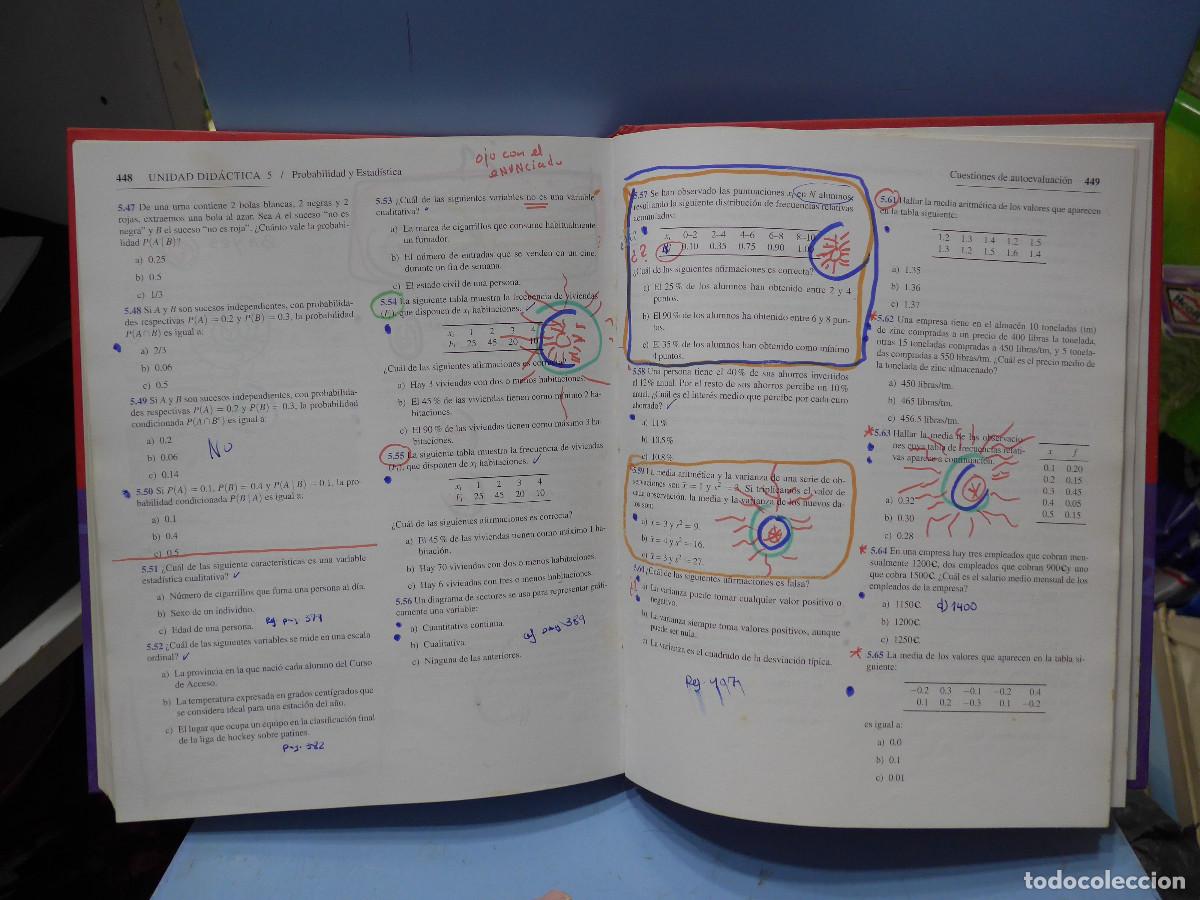 ojo con el
eNUNciado
448 UNIDAD DIDÁCTICA 5 / Probabilidad y Estadística
5.47 De una urna contiene 2 bolas blancas, 2 negras y 2
rojas, extraemos una bola al azar. Sea A el suceso “no es
negra” y B el suceso “no es roja”. ¿Cuánto vale la probabi-
lidad P(A | B)?
a) 0.25
b) 0.5
c) 1/3
5.48 Si A y B son sucesos independientes, con probabilida-
des respectivas P(A) = 0.2 y P(B) = 0.3, la probabilidad
P(A ∩ B) es igual a:
a) 2/3
b) 0.06
c) 0.5
5.49 Si A y B son sucesos independientes, con probabilida-
des respectivas P(A) = 0.2 y P(B) = 0.3, la probabilidad
condicionada P(A ∩ B) es igual a:
a) 0.2
b) 0.06
c) 0.14
No
5.50 Si P(A) = 0.1, P(B) = 0.4 y P(A | B) = 0.1, la pro-
babilidad condicionada P(B | A) es igual a:
a) 0.1
b) 0.4
c) 0.5
5.51 ¿Cuál de las siguiente características es una variable
estadística cualitativa? ✓
a) Número de cigarrillos que fuma una persona al día.
b) Sexo de un individuo.
c) Edad de una persona.
5.52 ¿Cuál de las siguientes variables se mide en una escala
ordinal? ✓
a) La provincia en la que nació cada alumno del Curso
de Acceso.
b) La temperatura expresada en grados centígrados que
se considera ideal para una estación del año.
c) El lugar que ocupa un equipo en la clasificación final
de la liga de hockey sobre patines.
5.53 ¿Cuál de las siguientes variables no es una variable
cualitativa?
a) La marca de cigarrillos que consume habitualmente
un fumador.
b) El número de entradas que se venden en un cine,
durante un fin de semana.
c) El estado civil de una persona.
5.54 La siguiente tabla muestra la frecuencia de viviendas
que disponen de xi habitaciones. ✓
xi 1 2 3 4
Fi 25 45 20 10
¿Cuál de las siguientes afirmaciones es correcta?
a) Hay 3 viviendas con dos o menos habitaciones.
b) El 45 % de las viviendas tienen como mínimo 2 ha-
bitaciones.
c) El 90 % de las viviendas tienen como máximo 3 ha-
bitaciones.
5.55 La siguiente tabla muestra la frecuencia de viviendas
(Fi), que disponen de xi habitaciones. ✓
xi 1 2 3 4
Fi 25 45 20 10
¿Cuál de las siguientes afirmaciones es correcta?
a) El 45 % de las viviendas tienen como máximo 1 ha-
bitación.
b) Hay 70 viviendas con dos o menos habitaciones.
c) Hay 6 viviendas con tres o menos habitaciones.
5.56 Un diagrama de sectores se usa para representar gráfi-
camente una variable:
a) Cuantitativa continua.
b) Cualitativa.
c) Ninguna de las anteriores.
Cuestiones de autoevaluación 449
5.57 Se han observado las puntuaciones xi en N alumnos,
resultando la siguiente distribución de frecuencias relativas
acumuladas:
xi 0–2 2–4 4–6 6–8 8–10
0.10 0.35 0.75 0.90
¿Cuál de las siguientes afirmaciones es correcta?
a) El 25 % de los alumnos han obtenido entre 2 y 4
puntos.
b) El 90 % de los alumnos ha obtenido entre 6 y 8 pun-
tos.
c) El 35 % de los alumnos han obtenido como mínimo
4 puntos.
5.58 Una persona tiene el 40 % de sus ahorros invertidos
al 12 % anual. Por el resto de sus ahorros percibe un 10 %
anual. ¿Cuál es el interés medio que percibe por cada euro
ahorrado? ✓
a) 11 %
b) 10.5 %
c) 10.8 %
5.59 La media aritmética y la varianza de una serie de ob-
servaciones son: x = 1 y s² = 3. Si triplicamos el valor de
cada observación, la media y la varianza de los nuevos da-
tos son:
a) x = 3 y s² = 9.
b) x = 4 y s² = 16.
c) x = 3 y s² = 27.
¿Cuál de las siguientes afirmaciones es falsa?
a) La varianza puede tomar cualquier valor positivo o
negativo.
b) La varianza siempre toma valores positivos, aunque
puede ser nula.
c) La varianza es el cuadrado de la desviación típica.
5.61 Hallar la media aritmética de los valores que aparecen
en la tabla siguiente:
1.2 1.3 1.4 1.2 1.5
1.3 1.2 1.5 1.6 1.4
a) 1.35
b) 1.36
c) 1.37
5.62 Una empresa tiene en el almacén 10 toneladas (tm)
de zinc compradas a un precio de 400 libras la tonelada,
otras 15 toneladas compradas a 450 libras/tm, y 5 tonela-
das compradas a 550 libras/tm. ¿Cuál es el precio medio de
la tonelada de zinc almacenado?
a) 450 libras/tm.
b) 465 libras/tm.
c) 456.5 libras/tm.
5.63 Hallar la media de las observacio-
nes cuya tabla de frecuencias relati-
vas aparece a continuación.
x f
0.1 0.20
0.2 0.15
0.3 0.45
0.4 0.05
0.5 0.15
a) 0.32
b) 0.30
c) 0.28
5.64 En una empresa hay tres empleados que cobran men-
sualmente 1200€, dos empleados que cobran 900€ y uno
que cobra 1500€. ¿Cuál es el salario medio mensual de los
empleados de la empresa?
a) 1150€ d) 1400
b) 1200€
c) 1250€
5.65 La media de los valores que aparecen en la tabla si-
guiente:
−0.2 0.3 −0.1 −0.2 0.4
0.1 0.2 −0.3 0.1 −0.2
es igual a:
a) 0.0
b) 0.1
c) 0.01
todocoleccion